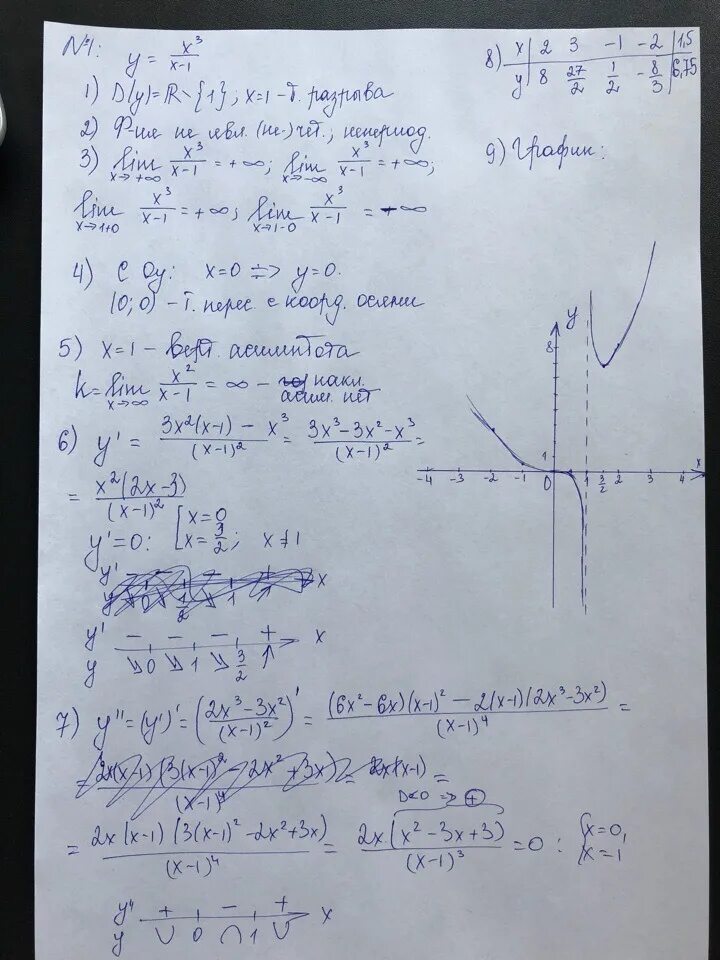 №1: y = x³/(x-1)
1) D(y)=R\{1}; x=1-т. разрыва
2) Ф-ия не явл. (не-)чёт., непериод.
3) lim x→+∞ x³/(x-1) = +∞; lim x→-∞ x³/(x-1) = +∞;
lim x→1+0 x³/(x-1) = +∞; lim x→1-0 x³/(x-1) = -∞
4) С Oy: x=0 => y=0.
(0;0) - т. перес. с коорд. осями
5) x=1 - верт. асимптота
k=lim x→∞ x²/(x-1) = ∞ - накл. асим. нет
6) y' = (3x²(x-1) - x³)/(x-1)² = (3x³-3x²-x³)/(x-1)² =
= x²(2x-3)/(x-1)²
y'=0: [x=0 x=3/2; x≠1
y' - - - + x
y ↘ 0 ↘ 1 ↘ 3/2 ↗
7) y''=(y')'=((2x³-3x²)/(x-1)²)' = ((6x²-6x)(x-1)² - 2(x-1)(2x³-3x²))/(x-1)⁴ =
D<0 → ⊕
= 2x(x-1)(3(x-1)²-2x²+3x)/(x-1)⁴ = 2x(x²-3x+3)/(x-1)³ =0 : {x=0, x=1
y'' + - + x
y ∪ 0 ∩ 1 ∪
8) x 2 3 -1 -2 1,5
y 8 27/2 1/2 -8/3 6,75
9) График:
y
8
1
-4 -3 -2 -1 0 1 3/2 2 3 4 x